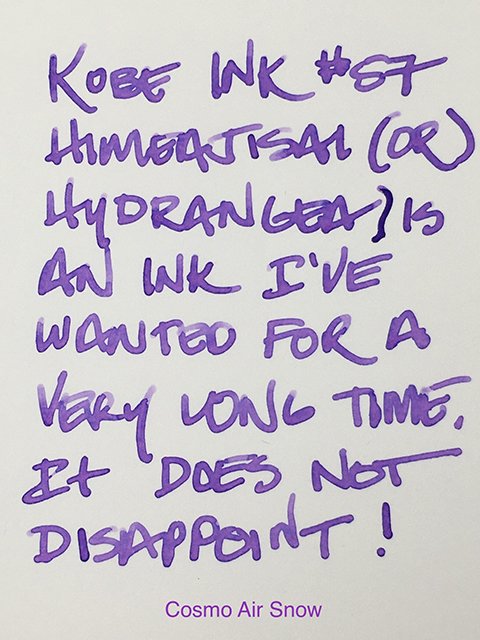 KOBE INK #57
HIMEAJISAI (OR
HYDRANGEA) IS
AN INK I'VE
WANTED FOR A
VERY LONG TIME.
IT DOES NOT
DISAPPOINT!
Cosmo Air Snow